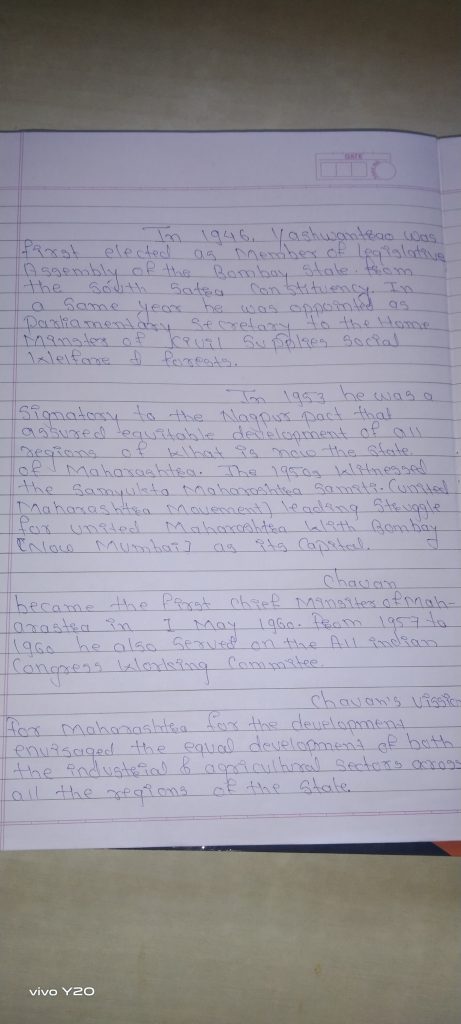 DATE
In 1946, Yashwantrao was
first elected as Member of legislative
Assembly of the Bombay State from
the South Satra Constituency. In
a Same year he was oppointed as
Parliamentary Secretary to the Home
Minster of Civil Supplies Social
Welfare & forests.
In 1953 he was a
Signatory to the Nagpur pact that
assured equitable development of all
regions of What is now the State
of Maharashtra. The 1950s Witnessed
the Samyukta Maharashtra Samiti. (united
Maharashtra Movement) leading Struggle
for united Maharashtra With Bombay
[Now Mumbai] as its Capital.
Chavan
became the First Chief Minsiter of Mah-
arastra in 1 May 1960. From 1957 to
1960 he also Served on the All indian
Congress Working Commitee.
Chavan's Vissio
for Maharashtra for the development
envisaged the equal development of both
the industrial & agricultural Sectors across
all the regions of the State.
vivo Y20